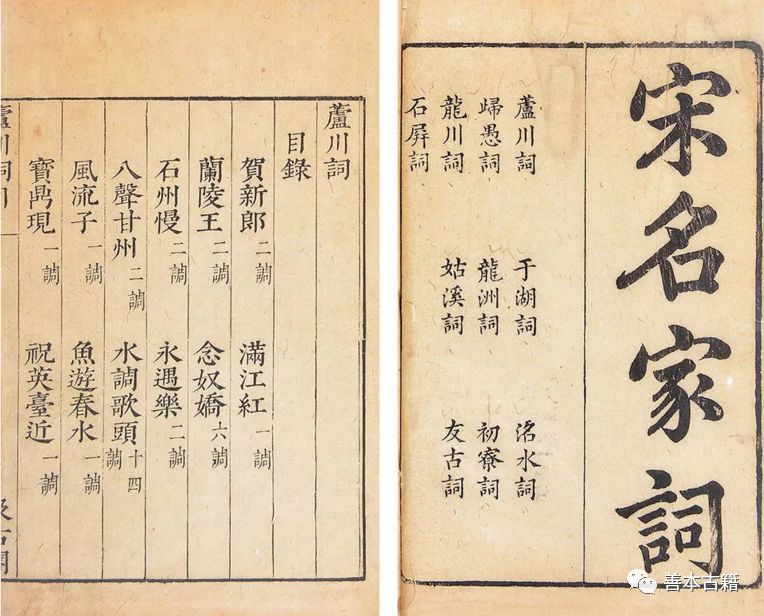 宋名家詞
蘆川詞 于湖詞 洺水詞
歸愚詞 龍洲詞 初寮詞
龍川詞 姑溪詞 友古詞
石屏詞
蘆川詞
目錄
賀新郎 二調 滿江紅 一調
蘭陵王 二調 念奴嬌 六調
石州慢 二調 永遇樂 二調
八聲甘州 二調 水調歌頭 十四調
風流子 一調 魚遊春水 一調
寶鼎現 一調 祝英臺近 一調
蘆川詞目
汲古閣
善本古籍